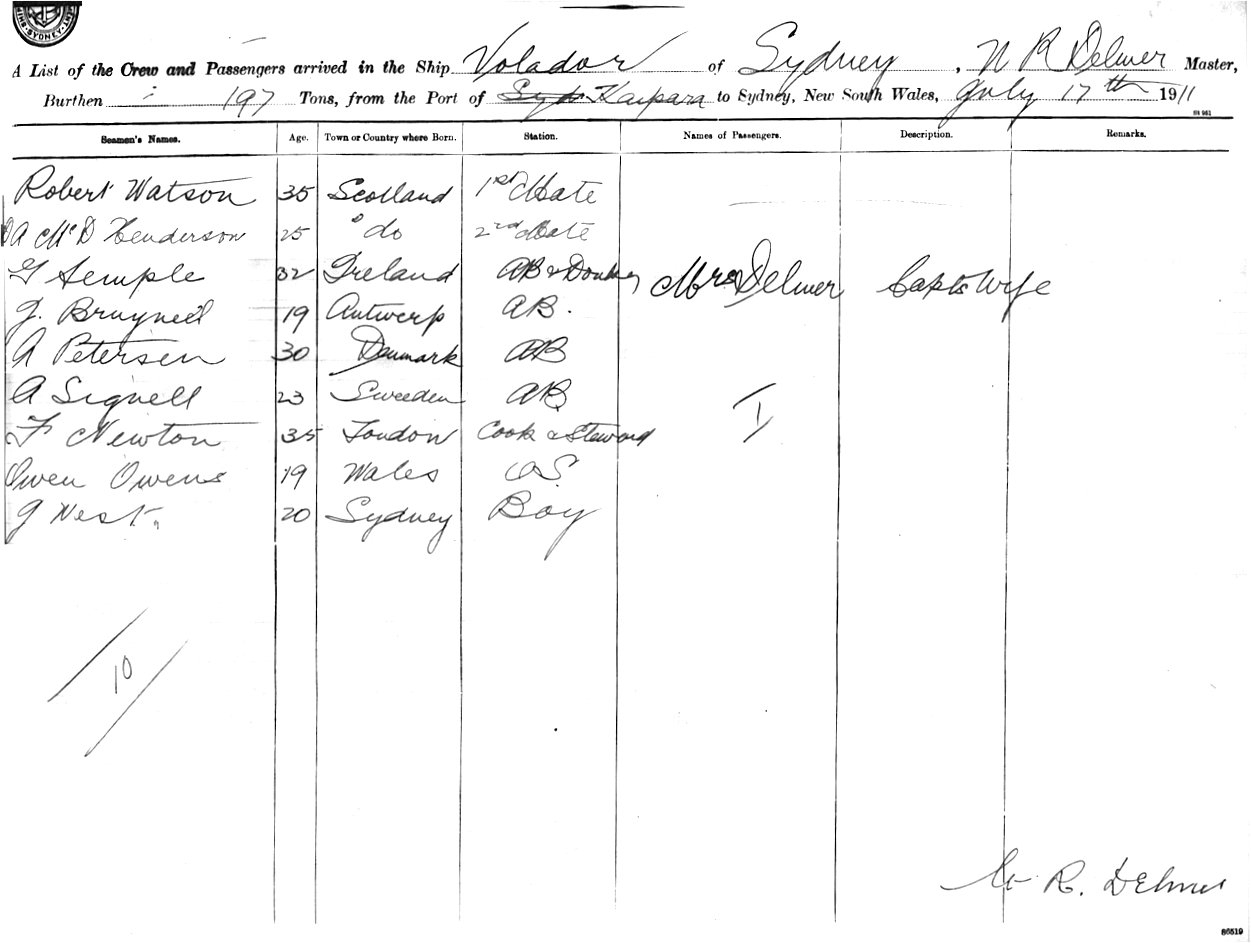 SYDNEY
A List of the Crew and Passengers arrived in the Ship Volador of Sydney, N R Delmer Master,
Burthen 197 Tons, from the Port of Kaipara to Sydney, New South Wales, July 17th 1911
Seamen's Names. Age. Town or Country where Born. Station. Names of Passengers. Description. Remarks.
Robert Watson 35 Scotland 1st Mate
A McD Henderson 25 " do 2nd Mate
G Semple 32 Ireland AB & Donkey Mrs Delmer Capts Wife
J. Bruyneel 19 Antwerp AB.
A Petersen 30 Denmark AB
A Signell 23 Sweeden AB
I
F Newton 35 London Cook & Steward
Owen Owens 19 Wales OS
J West 20 Sydney Boy
10
R. Delmer
86519